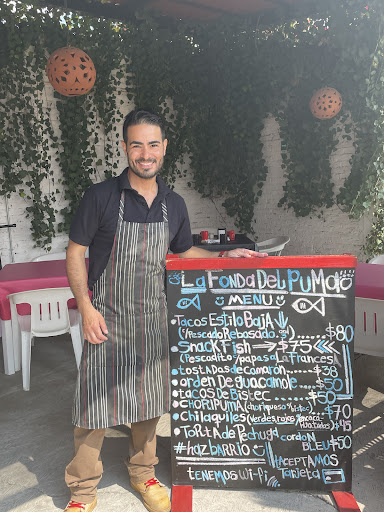 La Fonda Del PuMajo
MENU
Tacos Estilo BaJA
(Pescado Rebosado) $80
SnackFish $75
(Pescadito y papas a la Frances)
tostadas de camarón $38
orden De guacamole $50
tacos De Bistec $50
CHORIPUMA $70
Chilaquiles (Verdes, rojos $95
TORTA de Pechuga cordoN BLEU $50
#hazBARRIO ACEPTAMOS
tenemos wi-fi Tarjeta